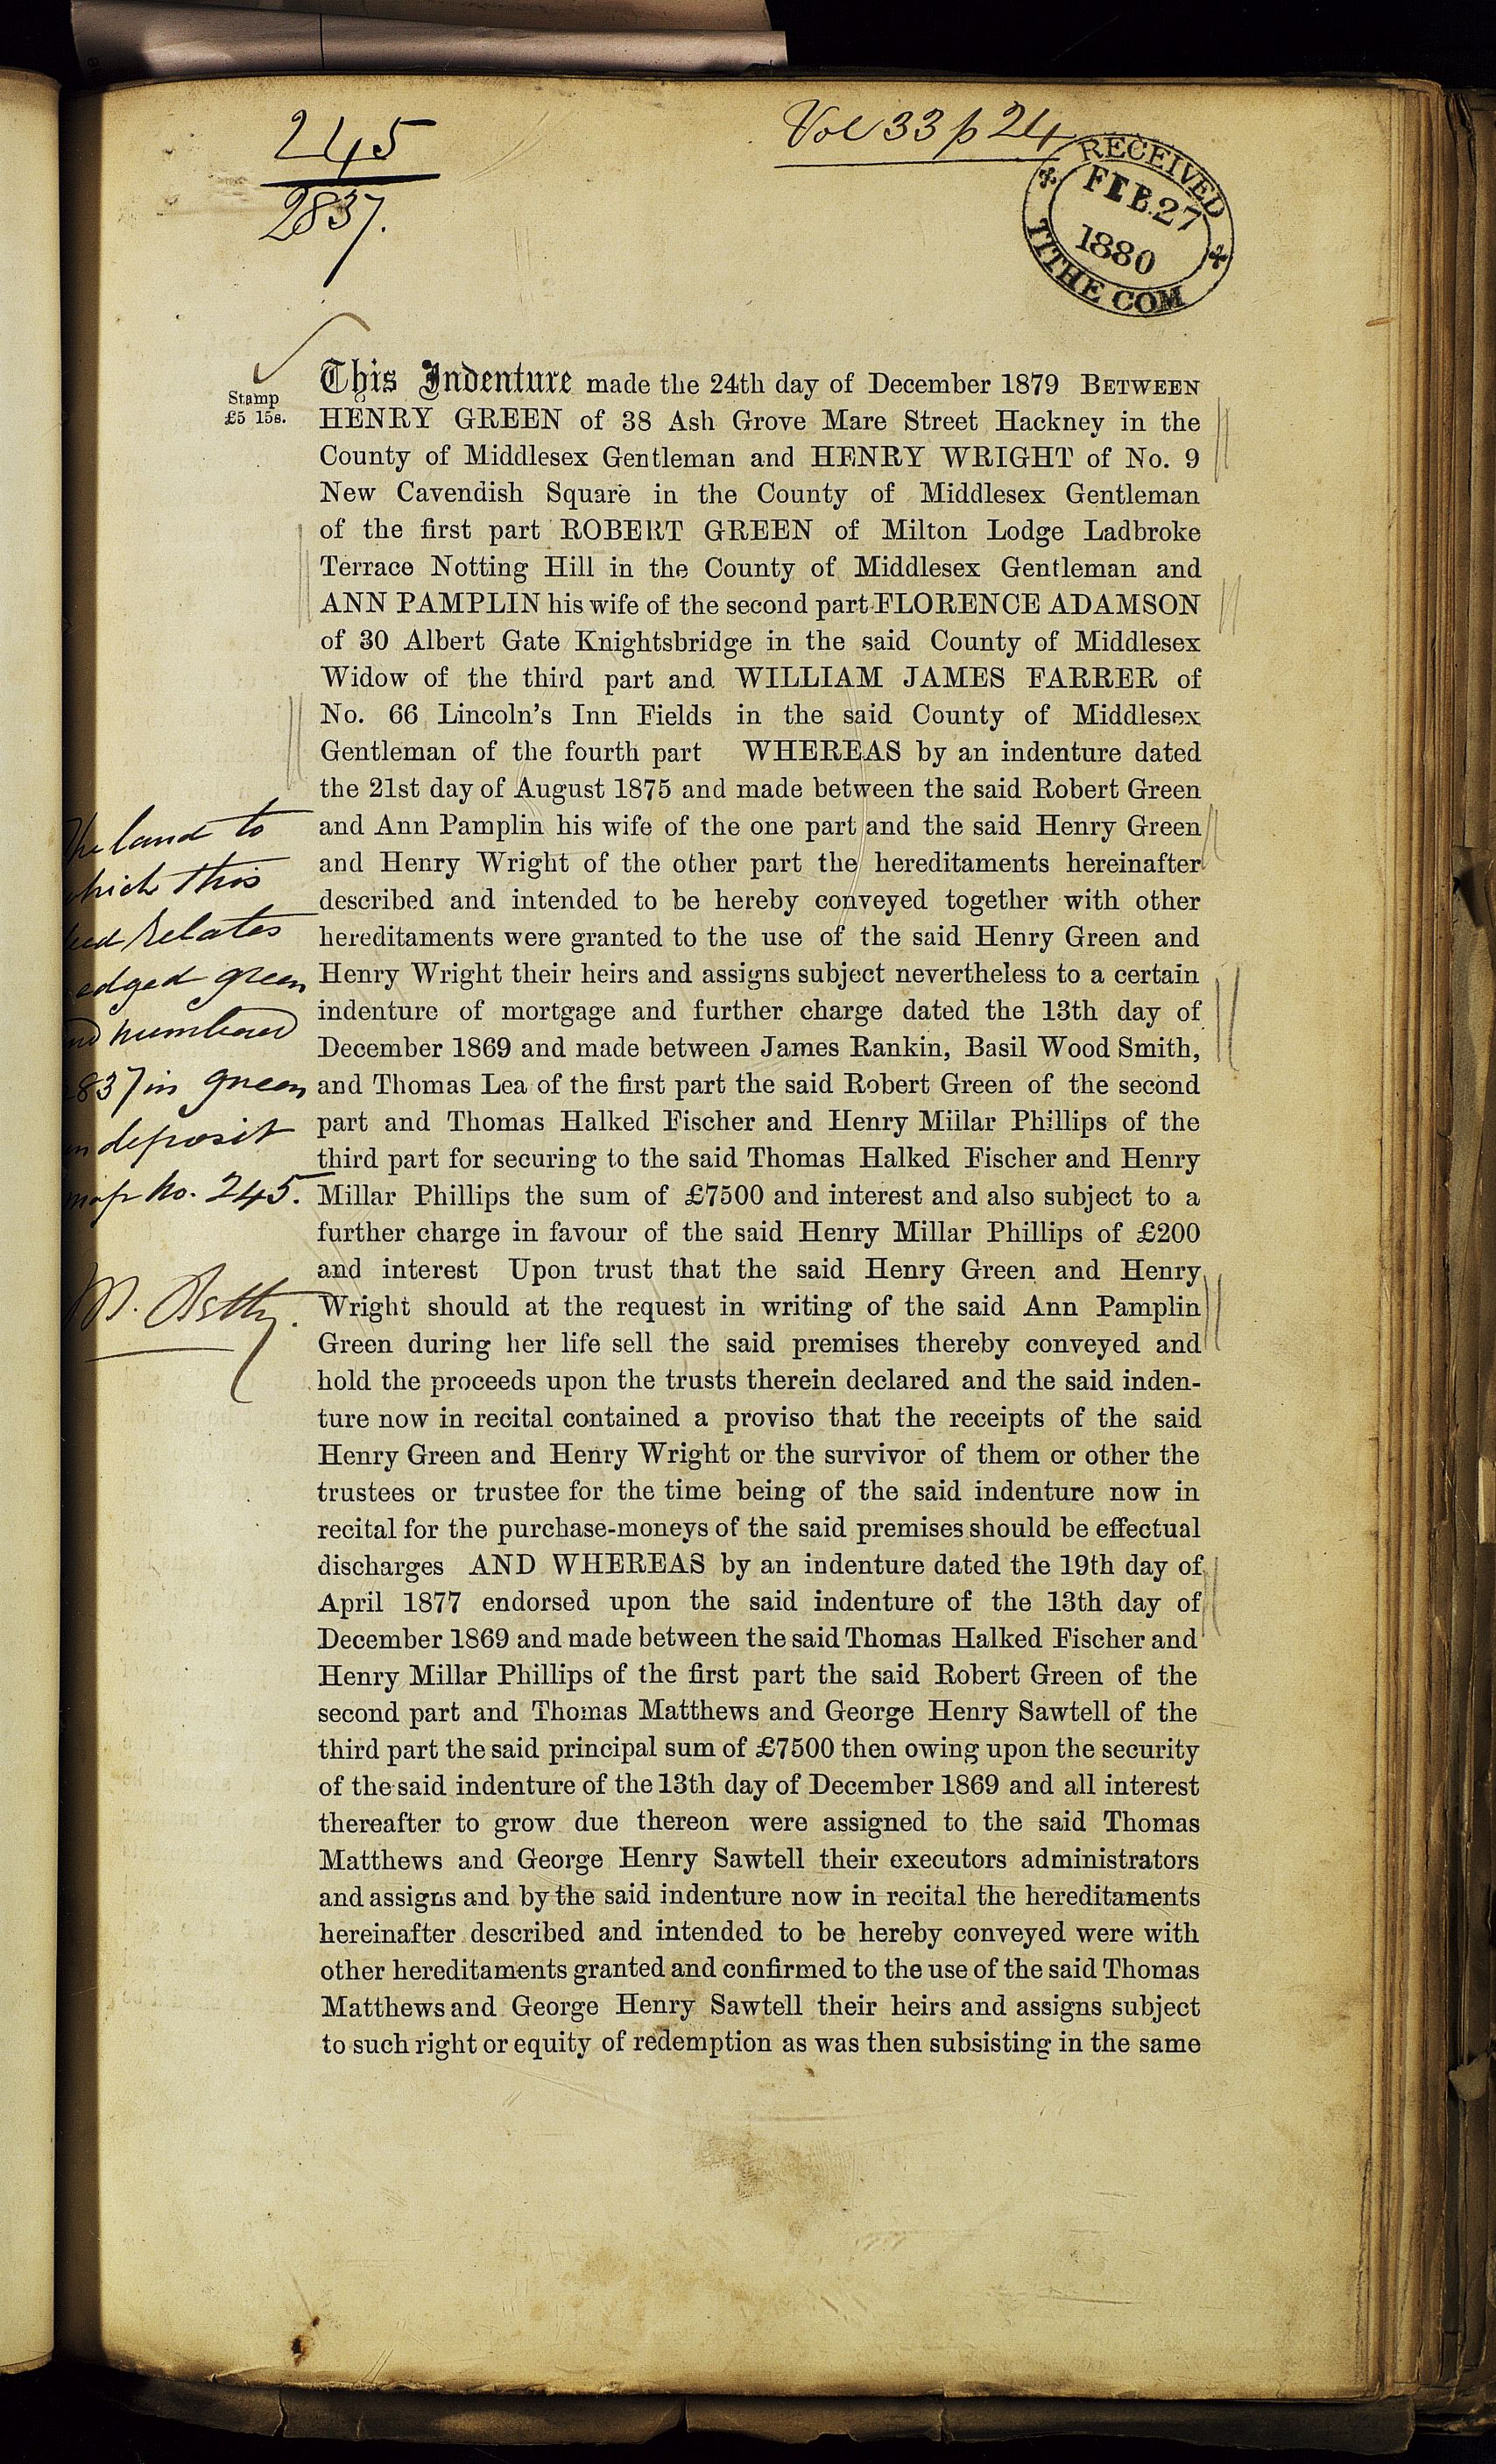 245
2837.
Vol 33 p 24
RECEIVED
FEB.27
1880
TITHE COM
Stamp
£5 15s.
This Indenture made the 24th day of December 1879 BETWEEN
HENRY GREEN of 38 Ash Grove Mare Street Hackney in the
County of Middlesex Gentleman and HENRY WRIGHT of No. 9
New Cavendish Square in the County of Middlesex Gentleman
of the first part ROBERT GREEN of Milton Lodge Ladbroke
Terrace Notting Hill in the County of Middlesex Gentleman and
ANN PAMPLIN his wife of the second part FLORENCE ADAMSON
of 30 Albert Gate Knightsbridge in the said County of Middlesex
Widow of the third part and WILLIAM JAMES FARRER of
No. 66 Lincoln's Inn Fields in the said County of Middlesex
Gentleman of the fourth part WHEREAS by an indenture dated
the 21st day of August 1875 and made between the said Robert Green
and Ann Pamplin his wife of the one part and the said Henry Green
and Henry Wright of the other part the hereditaments hereinafter
described and intended to be hereby conveyed together with other
hereditaments were granted to the use of the said Henry Green and
Henry Wright their heirs and assigns subject nevertheless to a certain
indenture of mortgage and further charge dated the 13th day of
December 1869 and made between James Rankin, Basil Wood Smith,
and Thomas Lea of the first part the said Robert Green of the second
part and Thomas Halked Fischer and Henry Millar Phillips of the
third part for securing to the said Thomas Halked Fischer and Henry
Millar Phillips the sum of £7500 and interest and also subject to a
further charge in favour of the said Henry Millar Phillips of £200
and interest Upon trust that the said Henry Green and Henry
Wright should at the request in writing of the said Ann Pamplin
Green during her life sell the said premises thereby conveyed and
hold the proceeds upon the trusts therein declared and the said inden-
ture now in recital contained a proviso that the receipts of the said
Henry Green and Henry Wright or the survivor of them or other the
trustees or trustee for the time being of the said indenture now in
recital for the purchase-moneys of the said premises should be effectual
discharges AND WHEREAS by an indenture dated the 19th day of
April 1877 endorsed upon the said indenture of the 13th day of
December 1869 and made between the said Thomas Halked Fischer and
Henry Millar Phillips of the first part the said Robert Green of the
second part and Thomas Matthews and George Henry Sawtell of the
third part the said principal sum of £7500 then owing upon the security
of the said indenture of the 13th day of December 1869 and all interest
thereafter to grow due thereon were assigned to the said Thomas
Matthews and George Henry Sawtell their executors administrators
and assigns and by the said indenture now in recital the hereditaments
hereinafter described and intended to be hereby conveyed were with
other hereditaments granted and confirmed to the use of the said Thomas
Matthews and George Henry Sawtell their heirs and assigns subject
to such right or equity of redemption as was then subsisting in the same
The land to
which this
relates
edged green
numbered
837 in green
deposit
map No. 245.